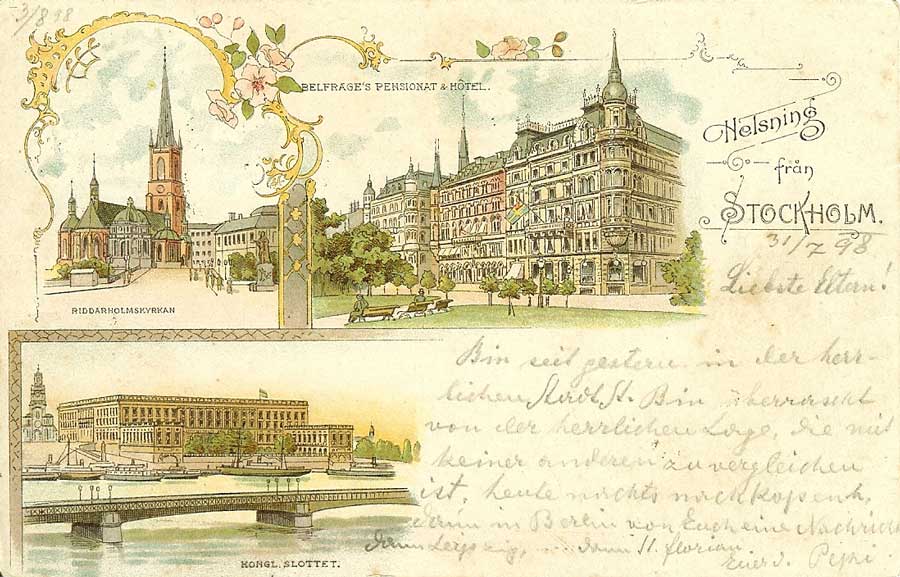 3/8 98
BELFRAGE'S PENSIONAT & HÔTEL.
Helsning
från
STOCKHOLM.
31/7 98
Liebste Eltern!
RIDDARHOLMSKYRKAN
Bin seit gestern in der herr-
lichen Stadt St. Bin überrascht
von der herrlichen Lage, die mit
keiner anderen zu vergleichen
ist, heute nachts nach Kopenh.
dann in Berlin von Euch eine Nachricht
dann Leipzig, ... dann St. Florian
Euer Pepi
KONGL. SLOTTET.